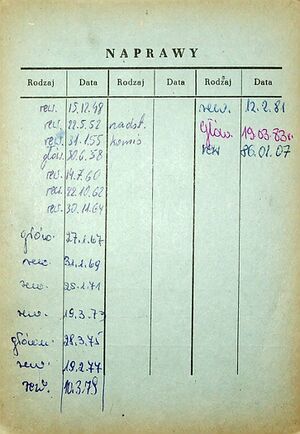 NAPRAWY
Rodzaj Data Rodzaj Data Rodzaj Data
rew. 15.12.48
rew. 22.5.52 nadst.
rew. 31.1.55 komis
głów. 30.6.58
rew. 14.7.60
rew. 22.10.62
rew. 30.11.64
głów. 27.1.67
rew. 31.1.69
rew. 25.1.71
rew. 19.3.73
główn. 28.3.75
rew. 19.2.77
rew. 10.3.79
rew. 12.2.81
głów. 19.03.83r.
rew 26.01.07